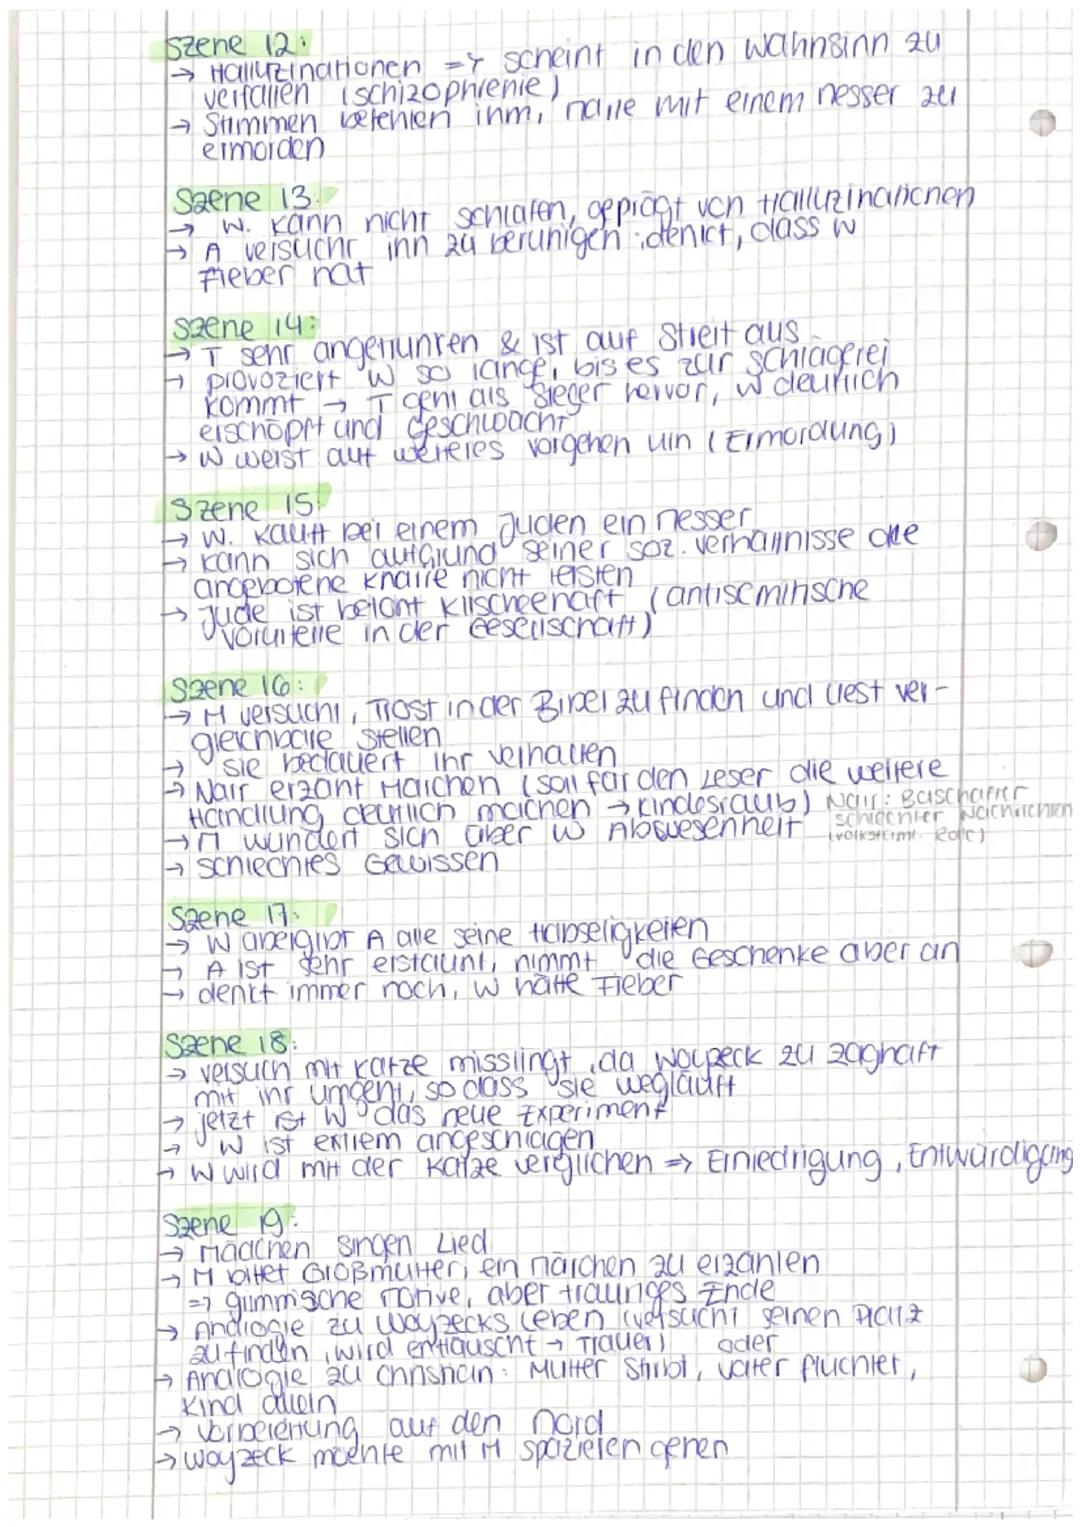 Szene 12:
→ Halluzinationen => scheint in den Wahnsinn zu
verfallen (schizophrenie)
→ Stimmen befehlen ihm, Marie mit einem Messer zu
ermorden
Szene 13:
→ W. kann nicht schlafen, geprägt von Halluzinationen
→ A versucht ihn zu beruhigen; denkt, dass W
Fieber hat
Szene 14:
→ T sehr angetrunken & ist auf Streit aus
→ provoziert W so lange, bis es zur Schlägerei
kommt → T geht als Sieger hervor, W deutlich
erschöpft und geschwächt
→ W weist auf weiteres Vorgehen hin (Ermordung)
Szene 15:
→ W. kauft bei einem Juden ein Messer
→ kann sich aufgrund seiner soz. Verhältnisse die
angebotene Knarre nicht leisten
→ Jude ist betont klischeehaft (antisemitische
Vorurteile in der Gesellschaft)
Szene 16:
→ M versucht, Trost in der Bibel zu finden und liest ver-
gleichbare Stellen
→ sie bedauert ihr Verhalten
→ Narr erzählt Märchen (soll für den Leser die weitere
Handlung deutlich machen → Kindesraub) Narr: Botschafter
schlechter Nachrichten
→ M wundert sich über W Abwesenheit (volkstüml. Rolle)
→ schlechtes Gewissen
Szene 17:
→ W übergibt A alle seine Habseligkeiten
→ A ist sehr erstaunt, nimmt die Geschenke aber an
→ denkt immer noch, W hätte Fieber
Szene 18:
→ Versuch mit Katze misslingt, da Woyzeck zu zaghaft
mit ihr umgeht, so dass sie wegläuft
→ jetzt ist W das neue Experiment
→ W ist extrem angeschlagen
→ W wird mit der Katze verglichen => Erniedrigung, Entwürdigung
Szene 19:
→ Mädchen singen Lied
→ M bittet Großmutter, ein Märchen zu erzählen
=> grimmsche Motive, aber trauriges Ende
→ Analogie zu Woyzecks Leben (versucht seinen Platz
zu finden, wird enttäuscht → Trauer) oder
→ Analogie zu Christian: Mutter stirbt, Vater flüchtet,
Kind allein
→ Vorbereitung auf den Mord
→ Woyzeck moehte mit M spazieren gehen